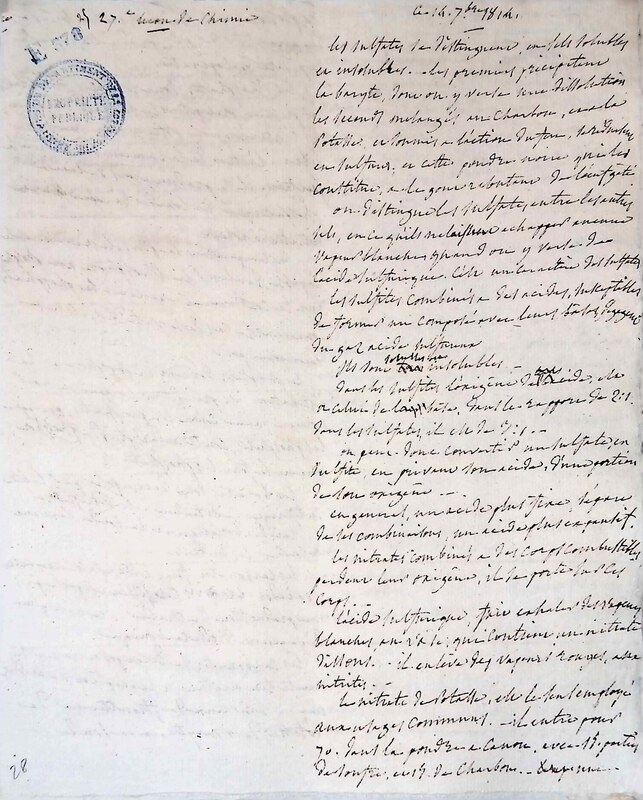 27.e Lecon de Chimie
ce 14. 7bre 1814.
E 878
PROPRIÉTÉ
PUBLIQUE
les sulfates se distinguent, en sels solubles
et insolubles. - les premiers précipitent
la baryte, dont on y verse une dissolution
les seconds mélangés au charbon, et a la
Potasse, et soumis a l'action du feu, se réduisent
en sulfure; et cette poudre noire qui les
constitue, a le gout rebutant de l'oeuf gâté
on distingue les sulfates, entre les autres
sels, en ce qu'ils ne laissent échapper aucune
vapeur blanche, quand on y verse de
l'acide sulfurique. C'est un caractère des sulfates
les sulfites combinés a des acides, susceptibles
de former un composé avec leurs bases, dégagent
du gaz acide sulfureux
ils sont solubles ou insolubles. -
dans les sulfites l'oxigène de l'acide, est
a celui de la base, dans le rapport de 2:1.
dans les sulfates, il est de 3:1. -
on peut donc convertir un sulfate en
sulfite, en privant son acide, d'une portion
de son oxigène. -
en general, un acide plus fixe, separe
de ses combinaisons, un acide plus expansif
les nitrates combinés a des corps combustibles
perdent leur oxigène, il se porte sur ces
corps. -
l'acide sulfurique, fait exhaler des vapeurs
blanches, au vase, qui contient un nitrate
dissous. - il enlève des vapeurs rouges, aux
nitrites. -
le nitrate de Potasse, est le seul employé
aux usages communs. - il entre pour
70. dans la poudre a Canon, avec 15. parties
de soufre, et 15. de charbon. -
28